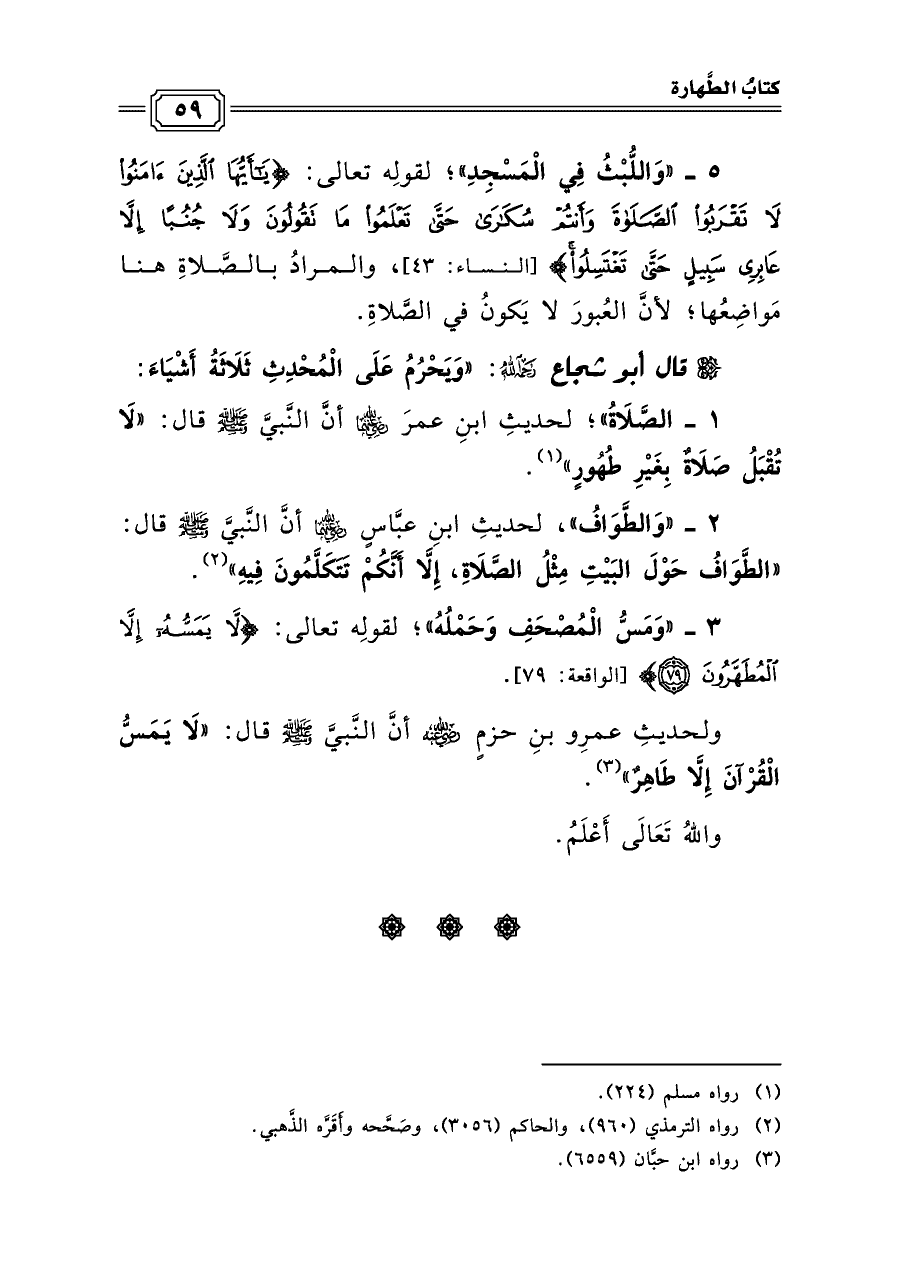 كتابُ الطَّهارة
٥٩
٥ ـ «وَاللُّبْثُ فِي الْمَسْجِدِ»؛ لقولِه تعالى: ﴿يَـٰٓأَيُّهَا ٱلَّذِينَ ءَامَنُوا۟
لَا تَقْرَبُوا۟ ٱلصَّلَوٰةَ وَأَنتُمْ سُكَـٰرَىٰ حَتَّىٰ تَعْلَمُوا۟ مَا تَقُولُونَ وَلَا جُنُبًا إِلَّا
عَابِرِى سَبِيلٍ حَتَّىٰ تَغْتَسِلُوا۟ۚ﴾ [النساء: ٤٣]، والمرادُ بالصَّلاةِ هنا
مَواضِعُها؛ لأنَّ العُبورَ لا يَكونُ في الصَّلاةِ.
قال أبو شجاع رَحِمَهُ اللَّهُ: «وَيَحْرُمُ عَلَى الْمُحْدِثِ ثَلَاثَةُ أَشْيَاءَ:
١ ـ الصَّلَاةُ»؛ لحديثِ ابنِ عمرَ رَضِيَ اللَّهُ عَنْهُمَا أنَّ النَّبيَّ ﷺ قال: «لَا
تُقْبَلُ صَلَاةٌ بِغَيْرِ طُهُورٍ»(١).
٢ ـ «وَالطَّوَافُ»، لحديثِ ابنِ عبَّاسٍ رَضِيَ اللَّهُ عَنْهُمَا أنَّ النَّبيَّ ﷺ قال:
«الطَّوَافُ حَوْلَ البَيْتِ مِثْلُ الصَّلَاةِ، إِلَّا أَنَّكُمْ تَتَكَلَّمُونَ فِيهِ»(٢).
٣ ـ «وَمَسُّ الْمُصْحَفِ وَحَمْلُهُ»؛ لقولِه تعالى: ﴿لَّا يَمَسُّهُۥٓ إِلَّا
ٱلْمُطَهَّرُونَ ٧٩﴾ [الواقعة: ٧٩].
ولحديثِ عمرِو بنِ حزمٍ رَضِيَ اللَّهُ عَنْهُ أنَّ النَّبيَّ ﷺ قال: «لَا يَمَسُّ
الْقُرْآنَ إِلَّا طَاهِرٌ»(٣).
واللهُ تَعَالَى أَعْلَمُ.
(١) رواه مسلم (٢٢٤).
(٢) رواه الترمذي (٩٦٠)، والحاكم (٣٠٥٦)، وصَحَّحه وأَقَرَّه الذَّهبي.
(٣) رواه ابن حبَّان (٦٥٥٩).